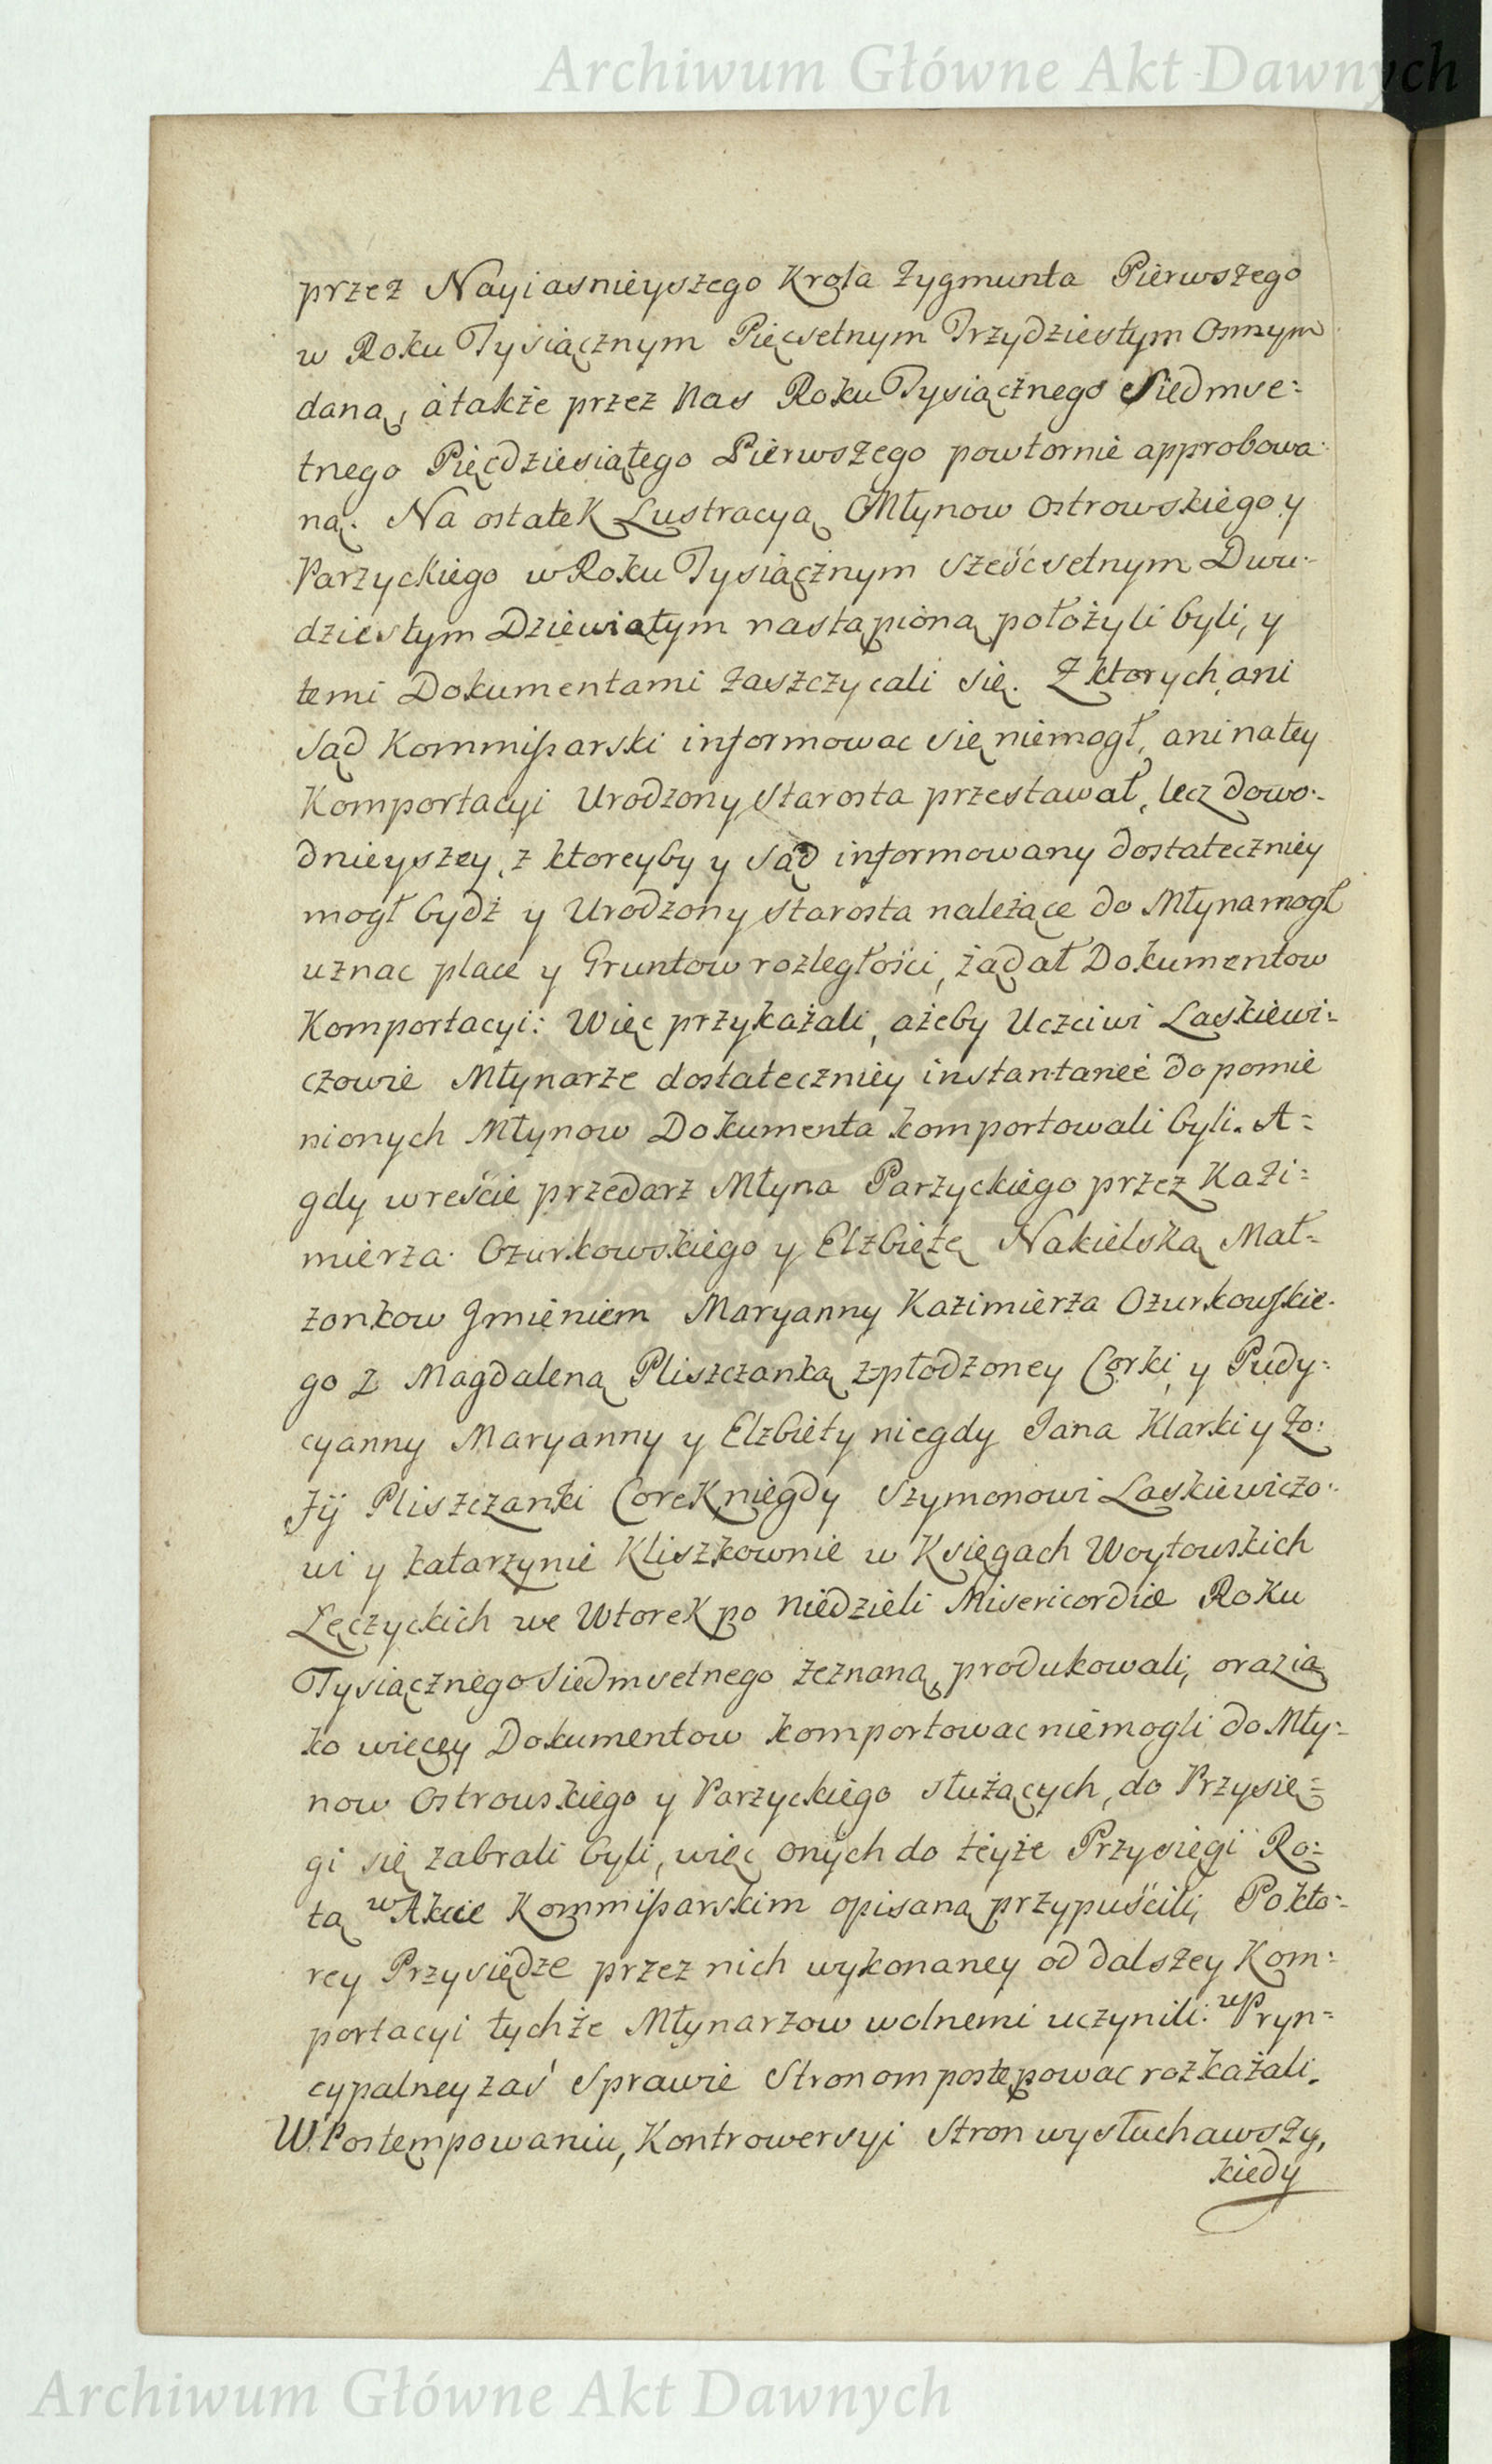 Archiwum Główne Akt Dawnych
przez Nayiasnieyszego Krola Zygmunta Pierwszego
w Roku Tysiącznym Pięcsetnym Trzydziestym Osmym
daną, átakże przez Nas Roku Tysiącznego Siedmse=
tnego Pięcdziesiątego Pierwszego powtornie approbowa-
ną. Na ostatek Lustracyą Młynow Ostrowskiego y
Parzyckiego w Roku Tysiącznym sześćsetnym Dwu-
dziestym Dziewiątym nastąpioną położyli byli, y
temi Dokumentami zaszczycali się. Z ktorych ani
Sąd Kommissarski informowac się niemogł, ani natey
Komportacyi Urodzony Starosta przestawał, lecz dowo-
dnieyszey, z ktoreyby y Sąd informowany dostateczniey
mogł bydź y Urodzony Starosta należące do Młyna mogł
uznac place y Gruntow rozległości, żądał Dokumentow
Komportacyi: Więc przykażali, ażeby Uczciwi Laskiewi-
czowie Młynarze dostateczniey instantaneé do pomie
nionych Młynow Dokumenta komportowali byli. A=
gdy wreście przedarz Młyna Parzyckiego przez Kazi=
mierza Ozurkowskiego y Elzbietę Nakielską Mał=
zonkow Jmieniem Maryanny Kazimierza Ozurkowskie-
go z Magdaleną Pliszczanką zpłodzoney Corki, y Pudy-
cyanny Maryanny y Elzbiety niegdy Jana Klarki y Zo-
fij Pliszczanki Corek niegdy Szymonowi Laskiewiczo-
wi y katarzynie Kliszkownie w Księgach Woytowskich
Łęczyckich we Wtorek po Niedzieli Misericordie Roku
Tysiącznego Siedmsetnego zeznaną, produkowali, oraz ia
ko więcey Dokumentow komportowac niemogli do Mły-
now Ostrowskiego y Parzyckiego służących, do Przysię=
gi się zabrali byli, więc onych do teyże Przysięgi Ro=
tą w Akcie Kommissarskim opisaną przypuścili, Po kto-
rey Przysiędze przez nich wykonaney od dalszey Kom-
portacyi tychże Młynarzow wolnemi uczynili: w Pryn=
cypalney zaś Sprawie Stronom postępowac rozkażali.
W Postempowaniu, Kontrowersyi Stron wysłuchawszy,
kiedy
Archiwum Główne Akt Dawnych